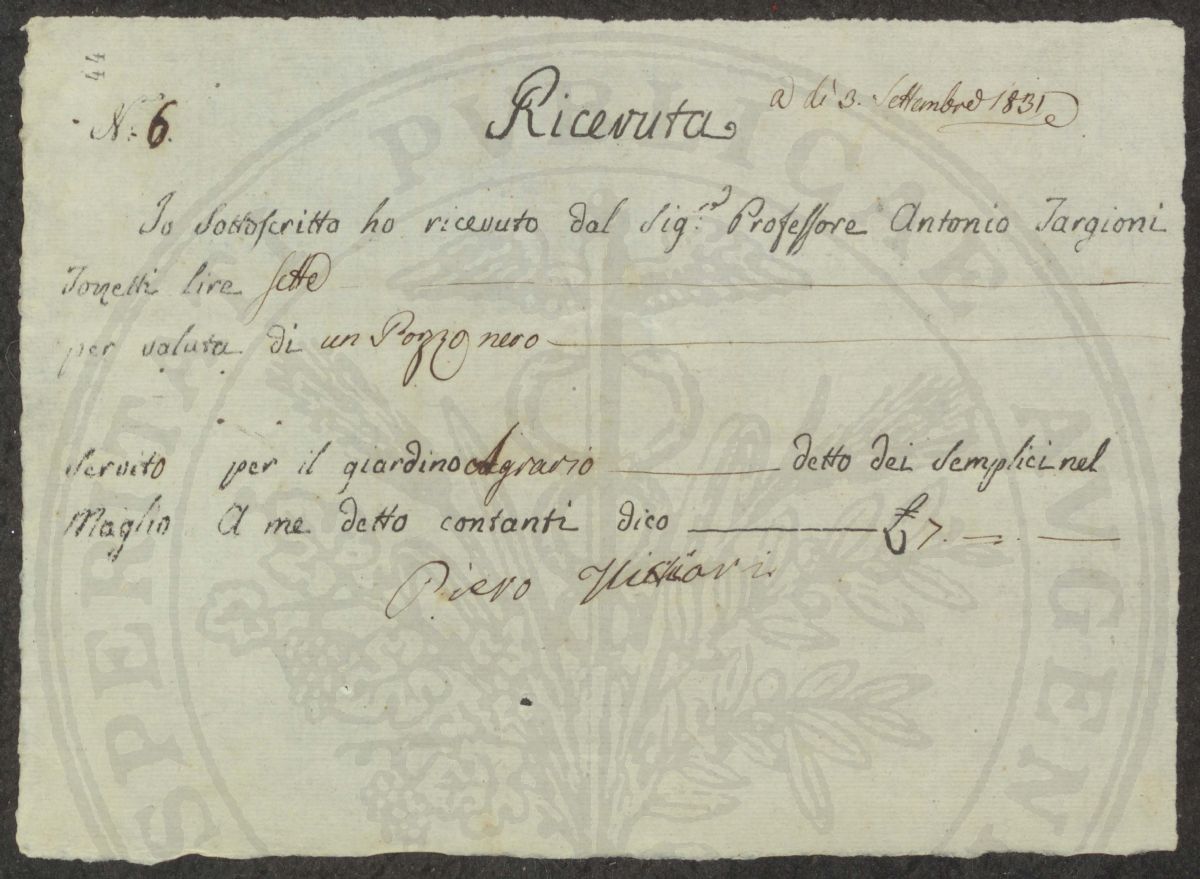 44
N.° 6.
Ricevuta
a dì 3. Settembre 1831
Io Sottoscritto ho ricevuto dal Sig.re Professore Antonio Targioni
Tozzetti lire sette
per valuta di un Pozzo nero
servito per il giardino Agrario detto dei Semplici nel
Maglio A me detto contanti dico £ 7. — . —
Piero
PROSPERITATI PUBLICAE AUGENDAE